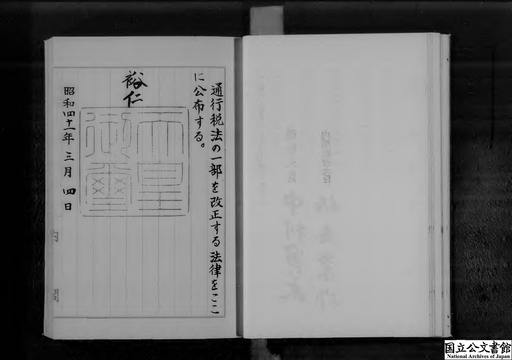 通行税法の一部を改正する法律をここ
に公布する。
裕仁
天皇御璽
昭和四十一年三月四日
国立公文書館
National Archives of Japan